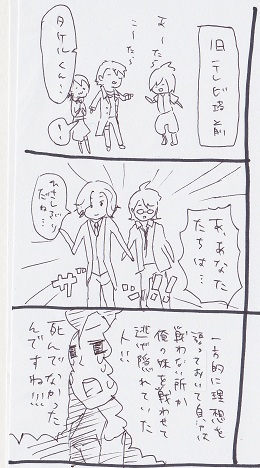 旧テレビ塔前
あーたら
こーたら
タケルくん…
!
あ、あなた
たちは…
ひさしぶり
だね…
ザッ
一方的に理想を
語っておいて自分は
戦わない所か
俺の妹を戦わせて
逃げ隠れていた
人!!
死んでなかった
んですね!!!!